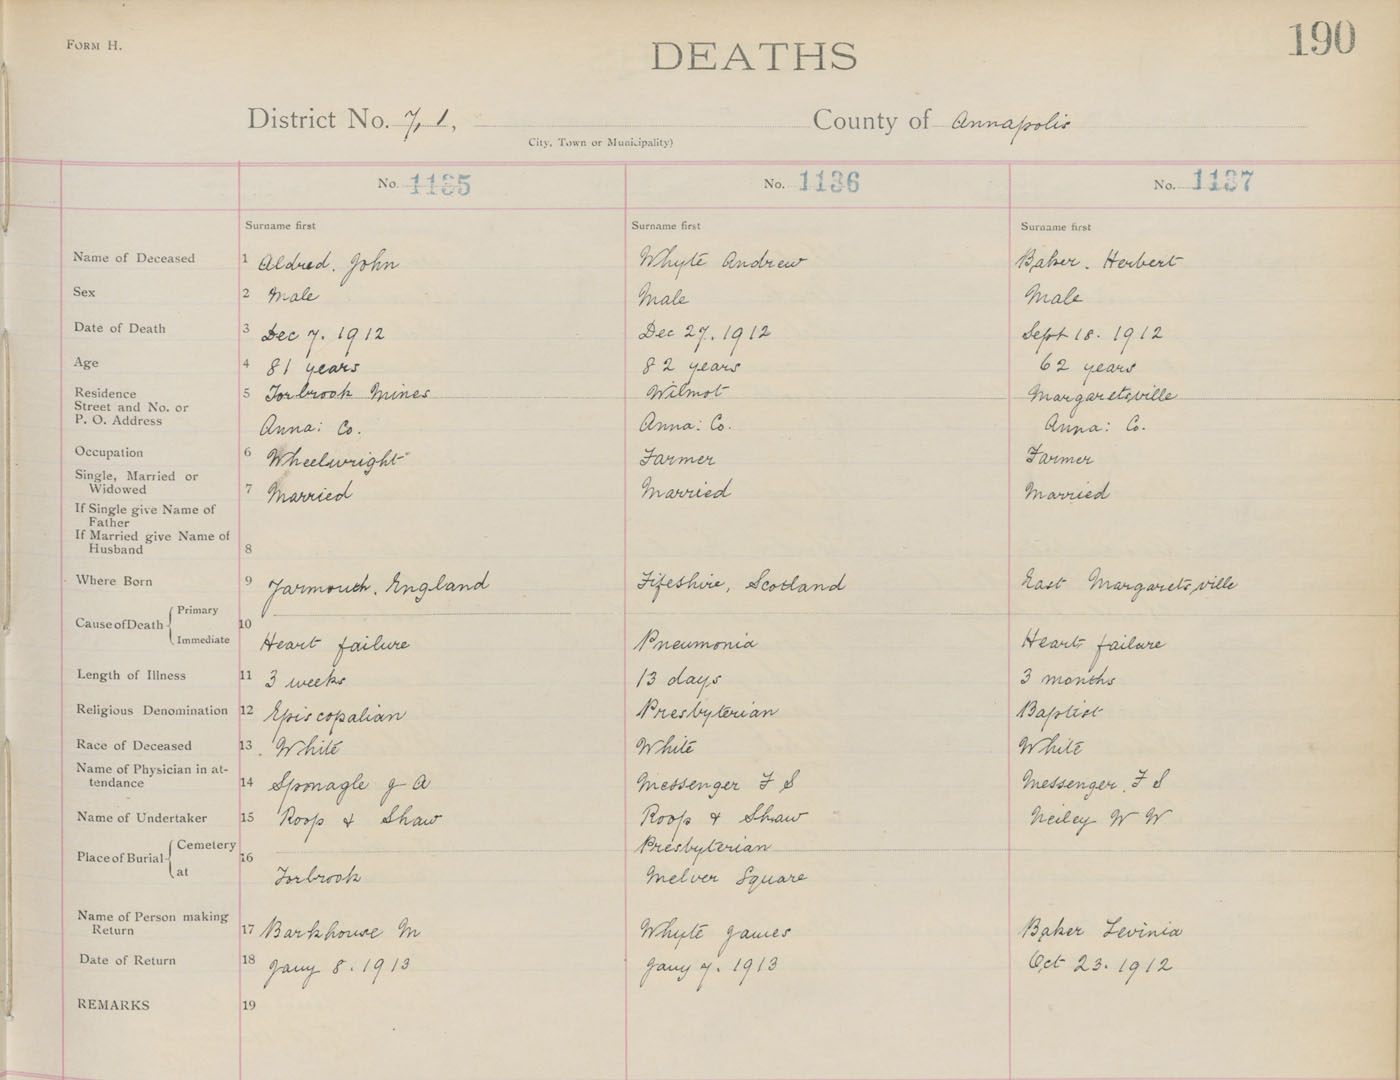 FORM H.
DEATHS
190
District No. 7, 1, County of Annapolis
City, Town or Municipality)
No. 1135 No. 1136 No. 1137
Surname first Surname first Surname first
Name of Deceased 1 Aldred, John Whyte Andrew Baker, Herbert
Sex 2 Male Male Male
Date of Death 3 Dec 7, 1912 Dec 27, 1912 Sept 18. 1912
Age 4 81 years 82 years 62 years
Residence 5 Torbrook Mines Wilmot Margaretsville
Street and No. or
P. O. Address Anna: Co. Anna: Co. Anna: Co.
Occupation 6 Wheelwright Farmer Farmer
Single, Married or
Widowed 7 Married Married Married
If Single give Name of
Father
If Married give Name of
Husband 8
Where Born 9 Yarmouth, England Fifeshire, Scotland East Margaretsville
Cause of Death Primary
10
Immediate Heart failure Pneumonia Heart failure
Length of Illness 11 3 weeks 13 days 3 months
Religious Denomination 12 Episcopalian Presbyterian Baptist
Race of Deceased 13 White White White
Name of Physician in at-
tendance 14 Sponagle J A Messenger F S Messenger, F S
Name of Undertaker 15 Roop & Shaw Roop & Shaw Neiley W W
Place of Burial Cemetery 16 Presbyterian
at Torbrook Melver Square
Name of Person making
Return 17 Barkhouse M Whyte James Baker Levinia
Date of Return 18 Jany 8. 1913 Jany 7. 1913 Oct 23. 1912
REMARKS 19